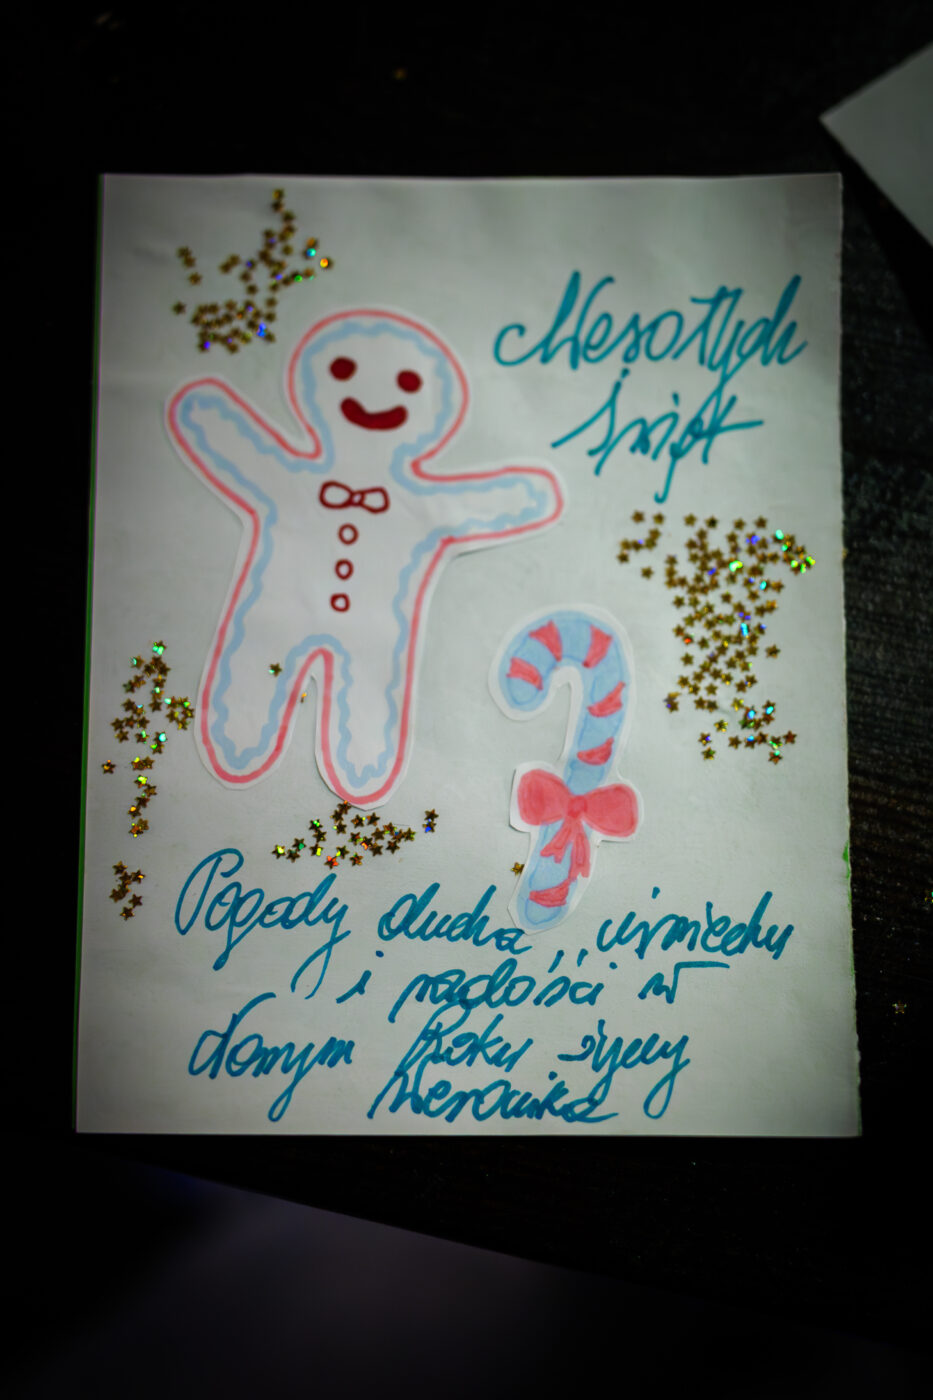 Wesołych
Świąt
Pogody ducha, uśmiechu
i radości w
Nowym Roku życzy
Weronika